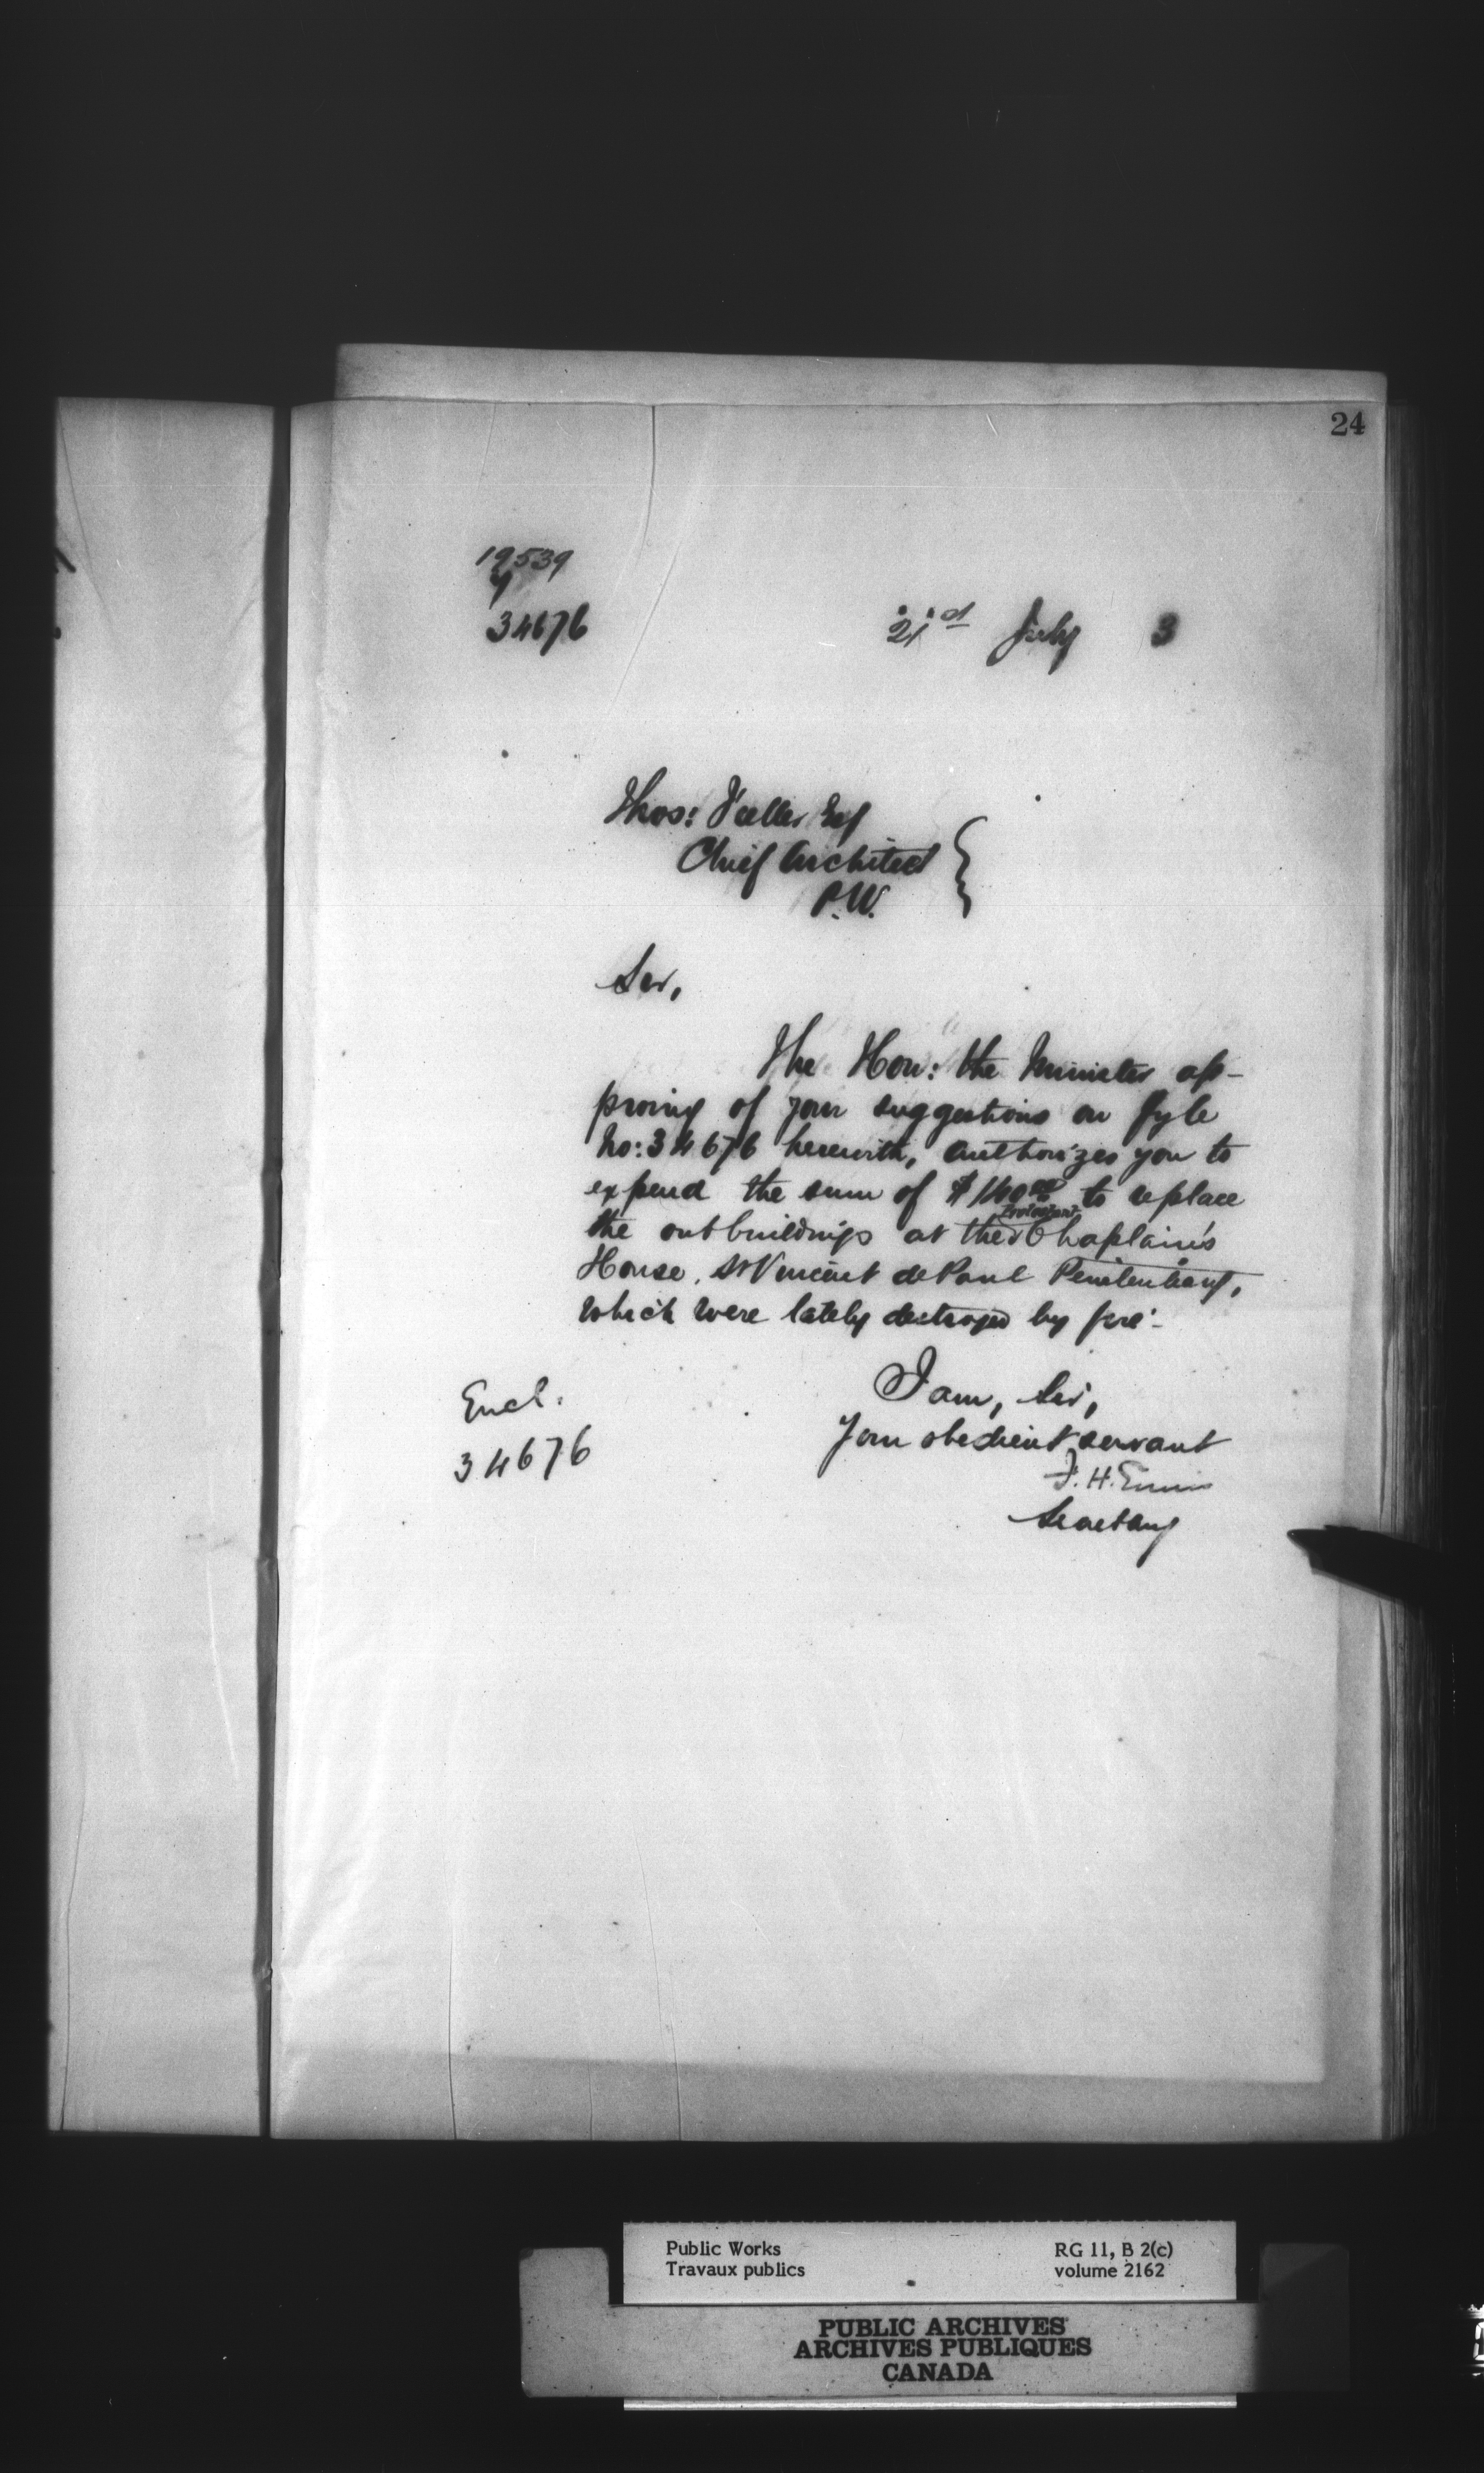 24
19539
34676
21st July 3
Thos: Fuller Esq
Chief Architect
P.W.
Sir,
The Hon: the Minister ap-
proving of your suggestions on fyle
No: 34676 herewith, authorizes you to
expend the sum of $140.00 to replace
the outbuildings at the Protestant Chaplain's
House, St Vincent de Paul Penitentiary,
which were lately destroyed by fire.
I am, Sir,
Your obedient servant
F. H. Ennis
Secretary
Encl.
34676
Public Works
Travaux publics
RG 11, B 2(c)
volume 2162
PUBLIC ARCHIVES
ARCHIVES PUBLIQUES
CANADA